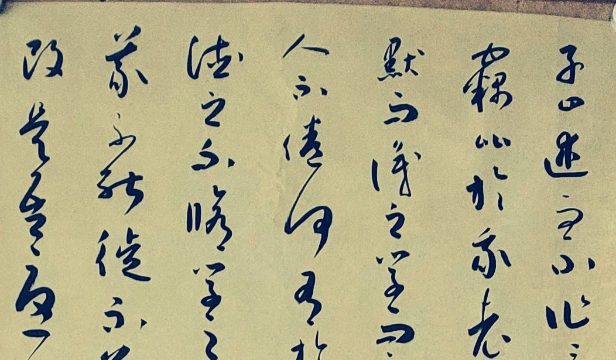 子曰述而不作
竊比於我老
默而識之學而
人不倦何有於
德之不脩學之
義不能徙不
改是吾憂